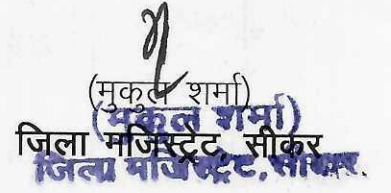 (मुकुल शर्मा)
(मुकुल शर्मा)
जिला मजिस्ट्रेट, सीकर
जिला मजिस्ट्रेट, सीकर.